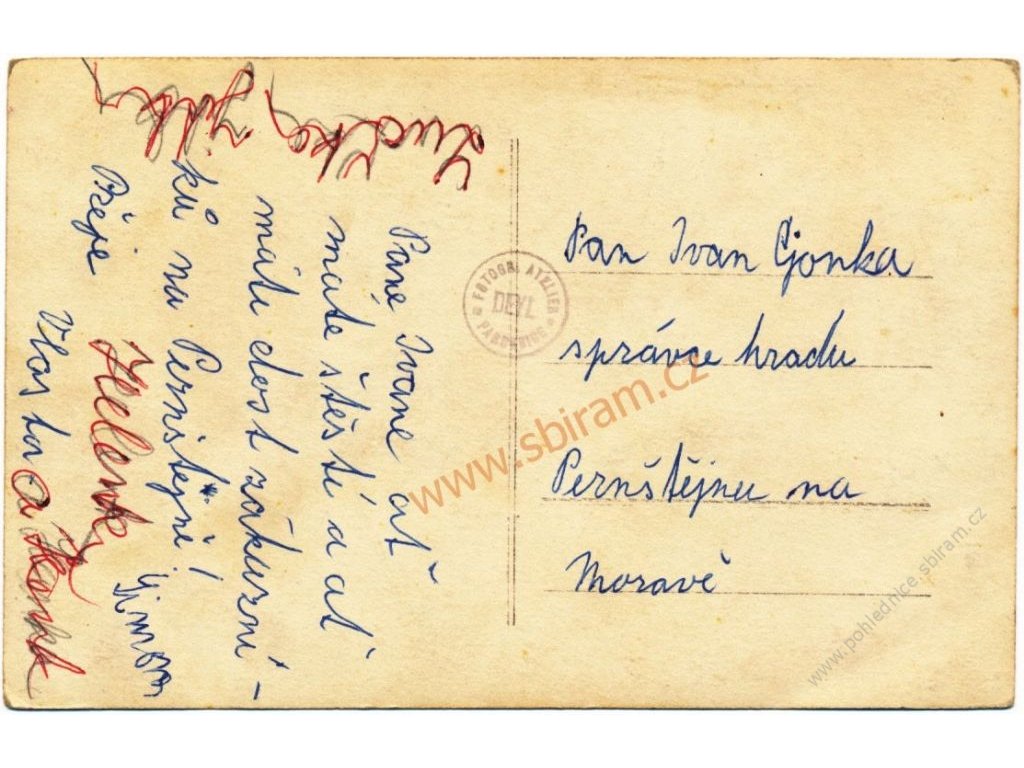 Luďka, Jitka
Pane Ivane ať
máte štěstí a ať
máte dost zákazní-
ků na Pernštejně!
Přeje
Helenka
Vlasta a
Pan Ivan Cjonka
správce hradu
Pernštějnu na
Moravě
FOTOGR. ATELIER
DEYL
PARDUBICE
www.sbiram.cz
www.pohlednice.sbiram.cz